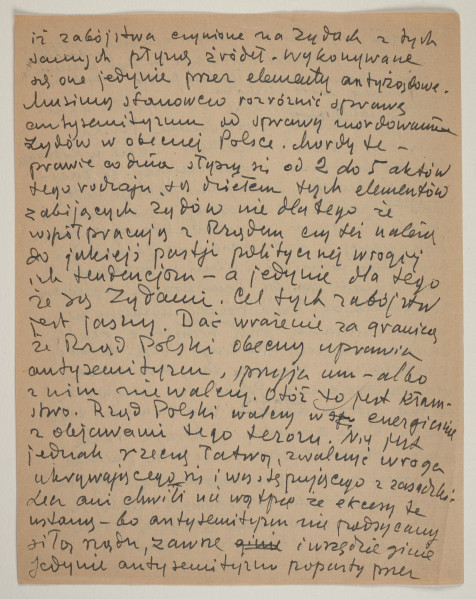 iż zabójstwa czynione na Żydach z tych
samych płyną źródeł. Wykonywane
są one jedynie przez elementy antyżydowe.
Musimy stanowczo rozróżnić sprawę
antysemityzmu od sprawy mordowania
Żydów w obecnej Polsce. Mordy te –
prawie co dnia słyszy się od 2 do 5 aktów
tego rodzaju są dziełem tych elementów
zabijających Żydów nie dlatego że
współpracują z Rządem czy też należą
do jakiejś partji politycznej wrogiej
ich tendencjom – a jedynie dla tego
że są Żydami. Cel tych zabójstw
jest jasny. Dać wrażenie za granicą
że Rząd Polski obecny uprawia
antysemityzm, sprzyja mu – albo
z nim nie walczy. Otóż to jest kłam-
stwo. Rząd Polski walczy energicznie
z objawami tego teroru. Nie jest
jednak rzeczą łatwą, zwalczać wroga
ukrywającego się i występującego z zasadzki.
Lecz ani chwili nie wątpię że ekscesy te
ustaną – bo antysemityzm nie podsycany
siłą rządu, zawsze i wszędzie ginie
jedynie antysemityzm poparty przez